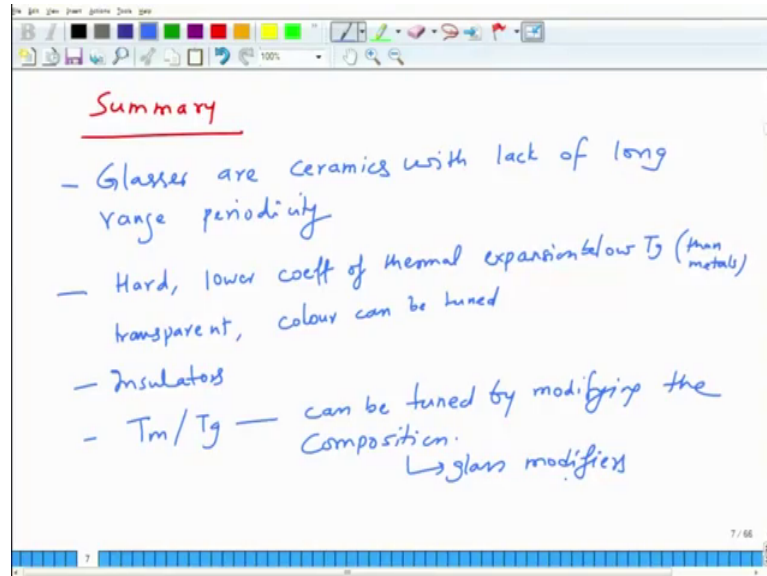 File Edit View Insert Actions Tools Help
B I
100%
Summary
- Glasses are ceramics with lack of long
range periodicity
- Hard, lower coeff of thermal expansion below Tg (than metals)
transparent, colour can be tuned
- Insulators
- Tm/Tg — can be tuned by modifying the
composition.
↳ glass modifiers
7 / 66
7